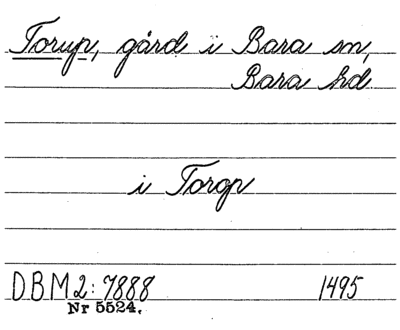 Torup, gård i Bara sn,
Bara hd.
i Torop
DBM 2: 7888 1495
Nr 5524.